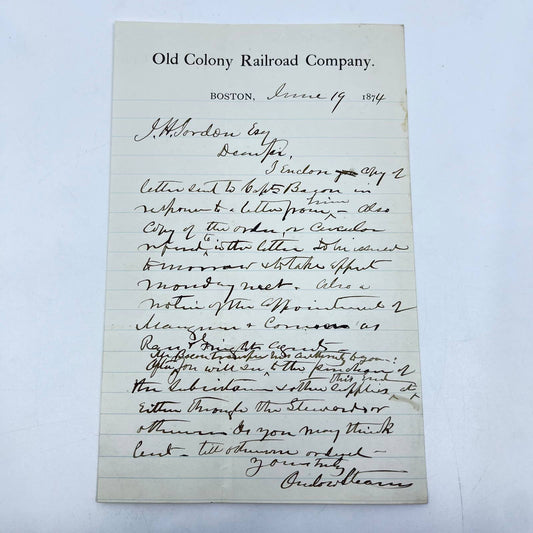 Old Colony Railroad Company.
BOSTON, June 19 1874
J. H. Jordon Esq
Dear Sir,
I Enclose copy of
letter sent to Capt Bacon in
response to a letter from him – Also
Copy of the order, or Circular
referd to in the letter to be issued
tomorrow & to take effect
Monday next. Also a
notice of the appointment of
& as
Freight Agents
Mr Bacon transfers his authority to you:
you will see to the purchase of
the & other supplies,
Either through the Stewards or
otherwise as you may think
best – till otherwise ordered –
yours truly
Onslow Stearns